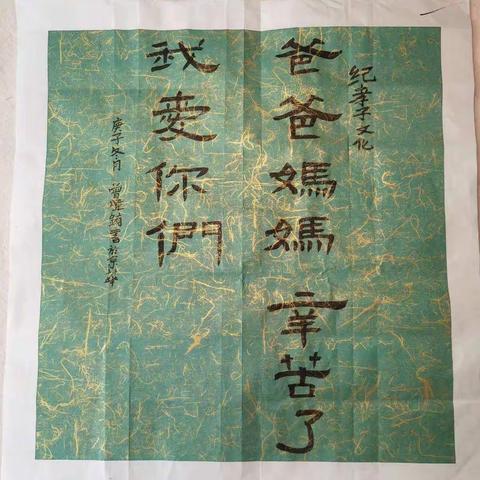 纪孝子文化
爸爸媽媽辛苦了
我愛你們
庚子冬月